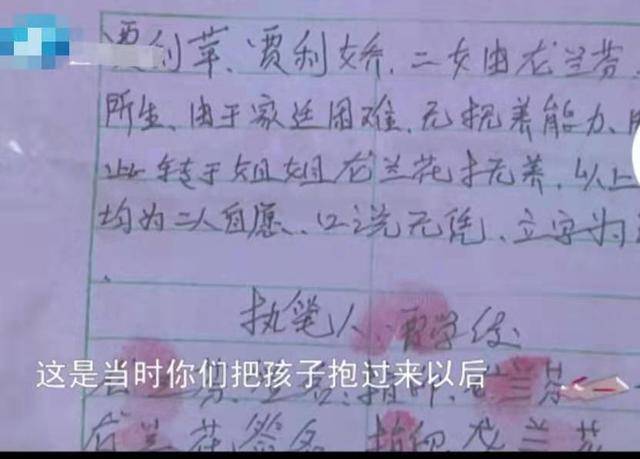 贾利苹、贾利娇、二女由龙兰芬、
所生、由于家廷困难、无抚养能力、
转于姐姐龙兰花抚养、以上
均为二人自愿、口说无凭、立字为
执笔人
这是当时你们把孩子抱过来以后
签名、指印、龙兰芬
龙兰花签名、指印 龙兰花